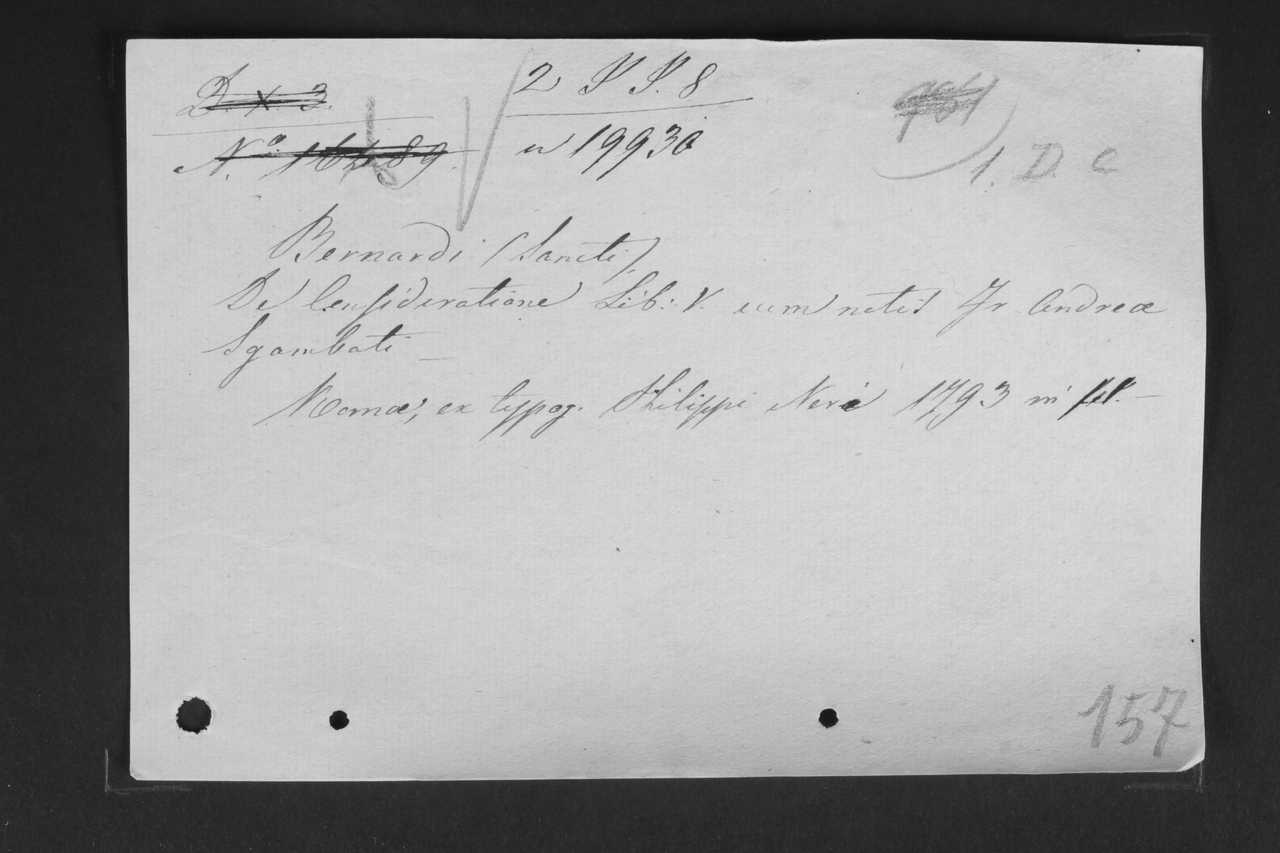 D. x. 3.
2 P P. 8
N.º 16489.
n 19930
1. D. C
Bernardi (Sancti)
De Consideratione Lib: V. cum notis Fr Andreæ
Sgambati —
Romæ, ex typog. Philippi Neri 1793 in
157